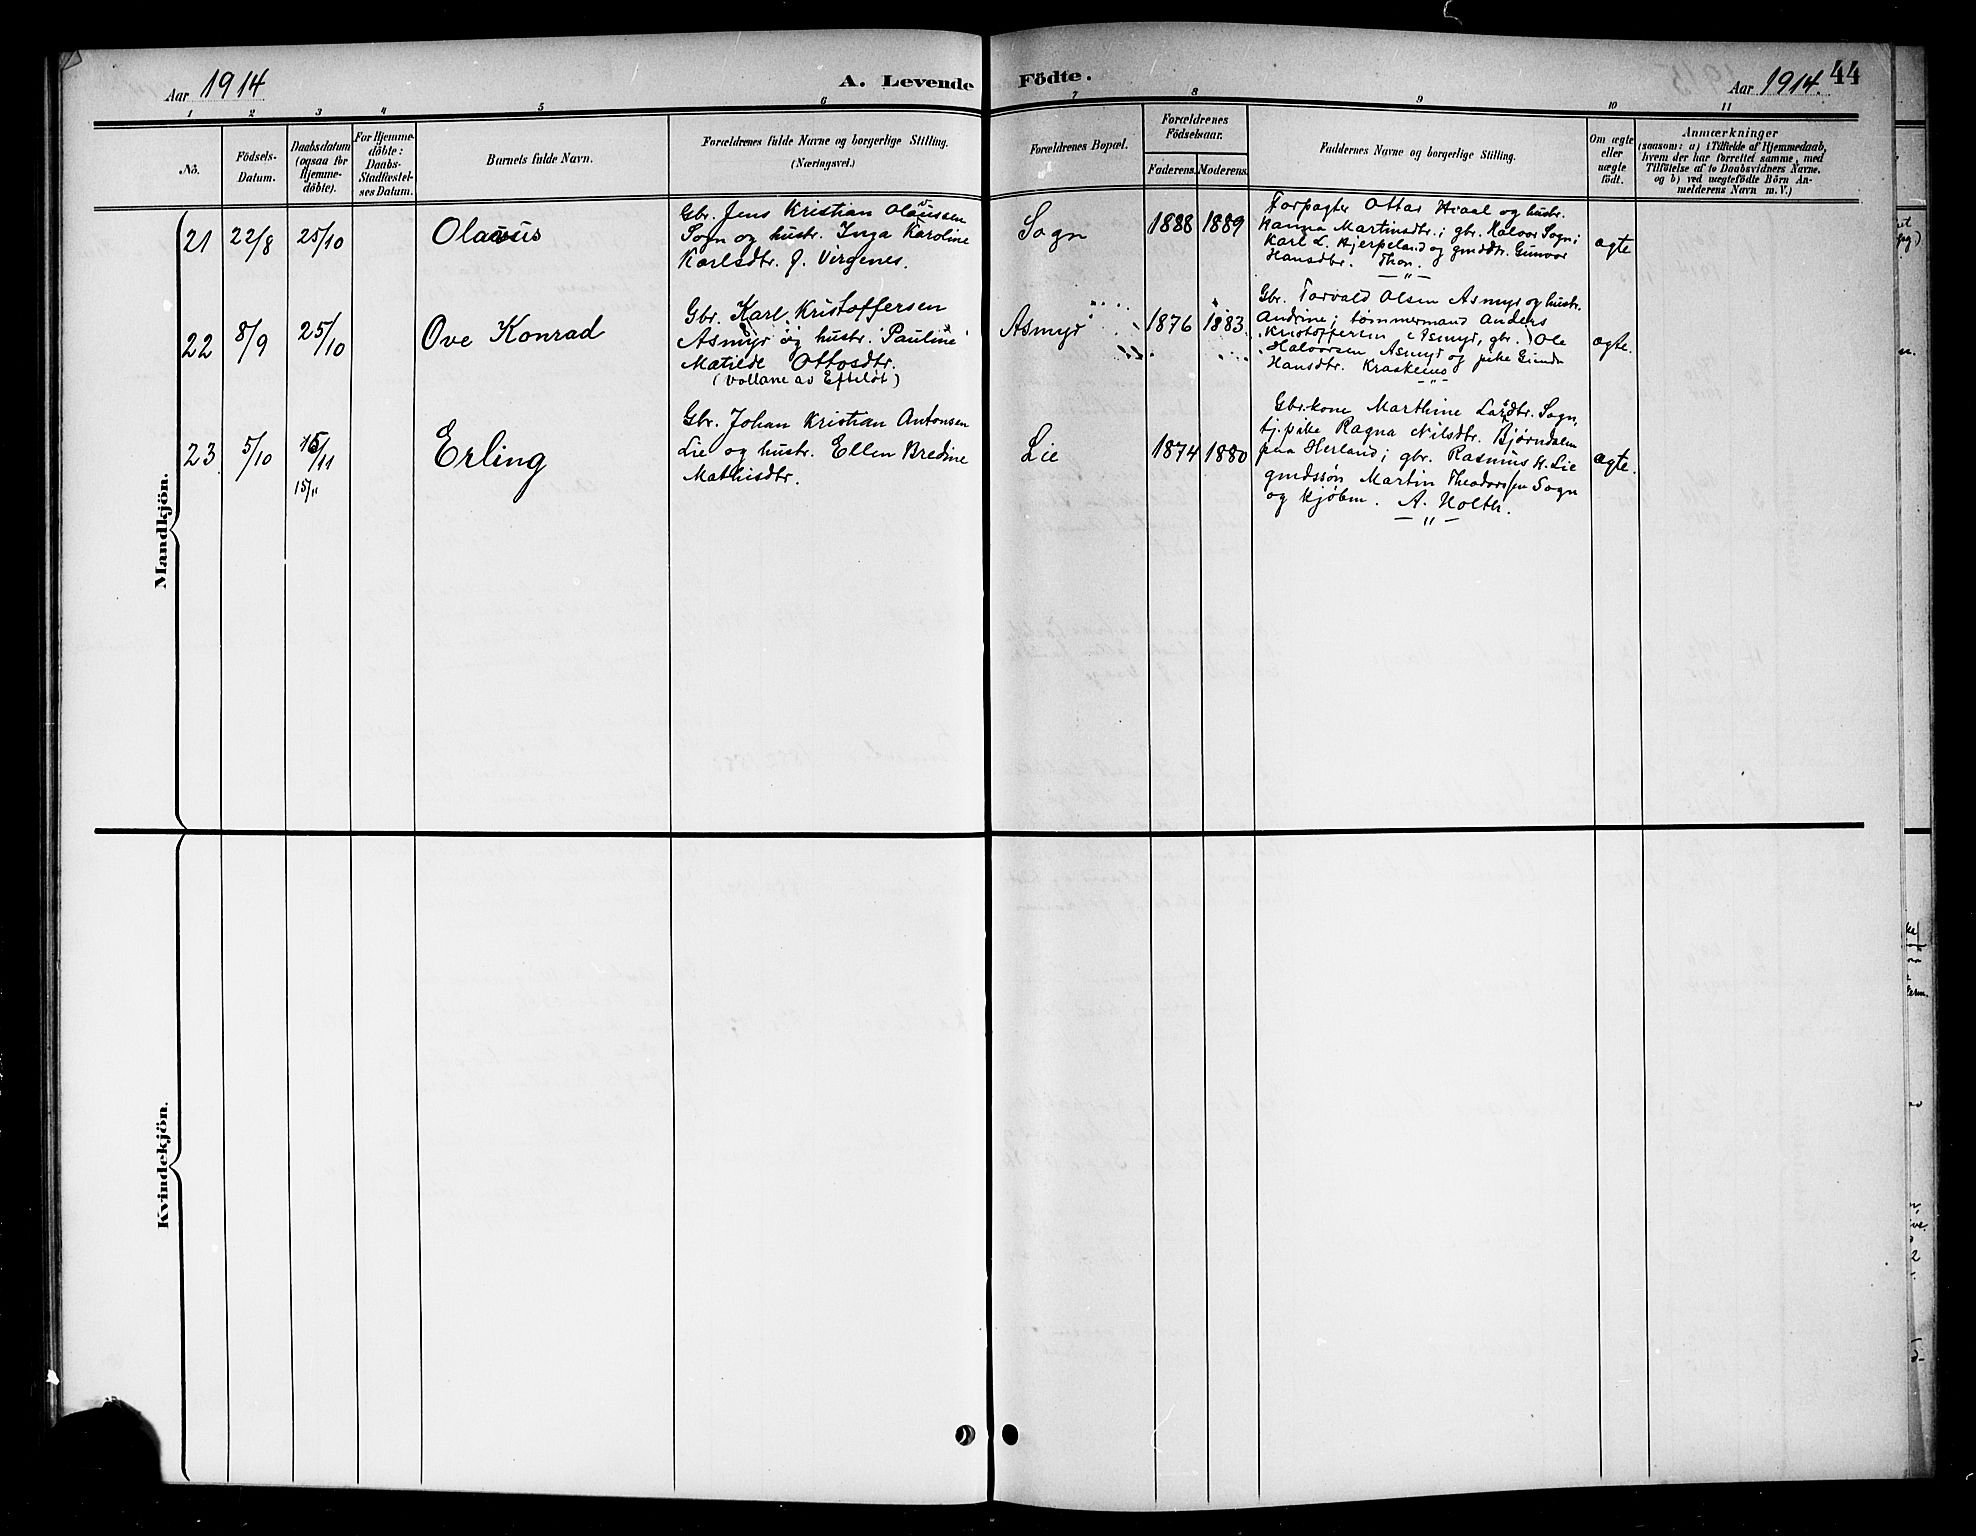 Aar 1914
A. Levende Födte.
Aar 1914. 44
1 2 3 4 5 6 7 8 9 10 11
No.
Födsels-
Datum.
Daabsdatum
(ogsaa for
Hjemme-
döbte).
For Hjemme-
döbte:
Daabs-
Stadfæstel-
ses Datum.
Barnets fulde Navn.
Forældrenes fulde Navne og borgerlige Stilling.
(Næringsvei.)
Forældrenes Bopæl.
Forældrenes
Födselsaar.
Faderens. Moderens.
Faddernes Navne og borgerlige Stilling.
Om ægte
eller
uægte
födt.
Anmærkninger
(saasom: a) i Tilfælde af Hjemmedaab,
hvem der har forrettet samme, med
Tilföielse af to Daabsvidners Navne.
og b) ved uægtefödte Börn An-
melderens Navn m. V.)
Mandkjön.
21 22/8 25/10 Olaus
Gbr. Jens Kristian Olaussen
Sogn og hustr. Inga Karoline
Karlsdtr. f. Virgenes.
Sogn 1888 1889
Forpagter Ottar Hiaal og hustr.
Hanna Martinsdtr.; gbr. Halvor Sogn;
Karl L. Hjerpeland og gmddtr. Gunvor
Hansdtr. Thon.
— " —
ægte
22 8/9 25/10 Ove Konrad
Gbr. Karl Kristoffersen
Asmyr og hustr. Pauline
Matilde Ottosdtr.
(Vollane av Efteløt)
Asmyr 1876 1883.
Gbr. Torvald Olsen Asmyr og hustr.
Andrine; tømmermand Anders
Kristoffersen (Asmyr, gbr.) Ole
Halvorsen Asmyr og pike Ginda
Hansdtr. Kraskeins
— " —
ægte.
23 5/10 15/11 Erling
15/11
Gbr. Johan Kristian Antonsen
Lie og hustr. Ellen Bredine
Mathisdtr.
Lie 1874 1880
Gbr.kone Marthine Larsdtr. Sogn,
tj.pike Ragna Nilsdtr. Bjørndalen
paa Herland; gbr. Rasmus H. Lie
gmdssøn Martin Theodorssen Sogn
og kjøbm. A. Holth.
— " —
ægte.
Kvindekjön.